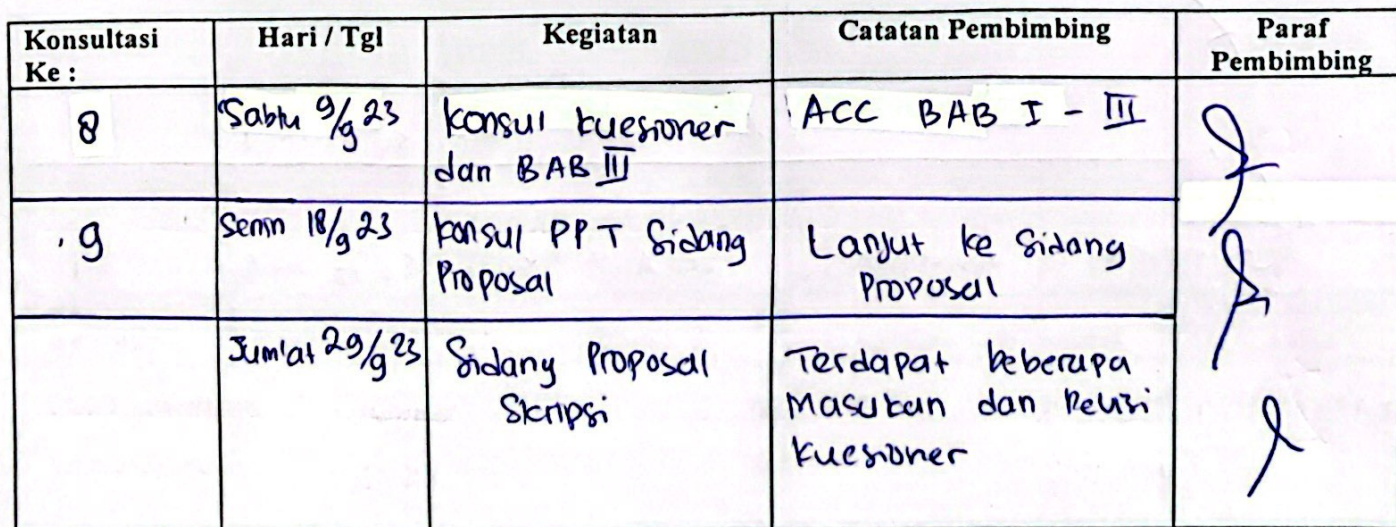 Konsultasi Ke :
Hari / Tgl
Kegiatan
Catatan Pembimbing
Paraf Pembimbing
8
Sabtu 9/9 23
Konsul kuesioner
dan BAB III
ACC BAB I - III
9
Senin 18/9 23
Konsul PPT Sidang
Proposal
Lanjut ke Sidang
Proposal
Jum'at 29/9 23
Sidang Proposal
Skripsi
Terdapat beberapa
Masukan dan Revisi
Kuesioner